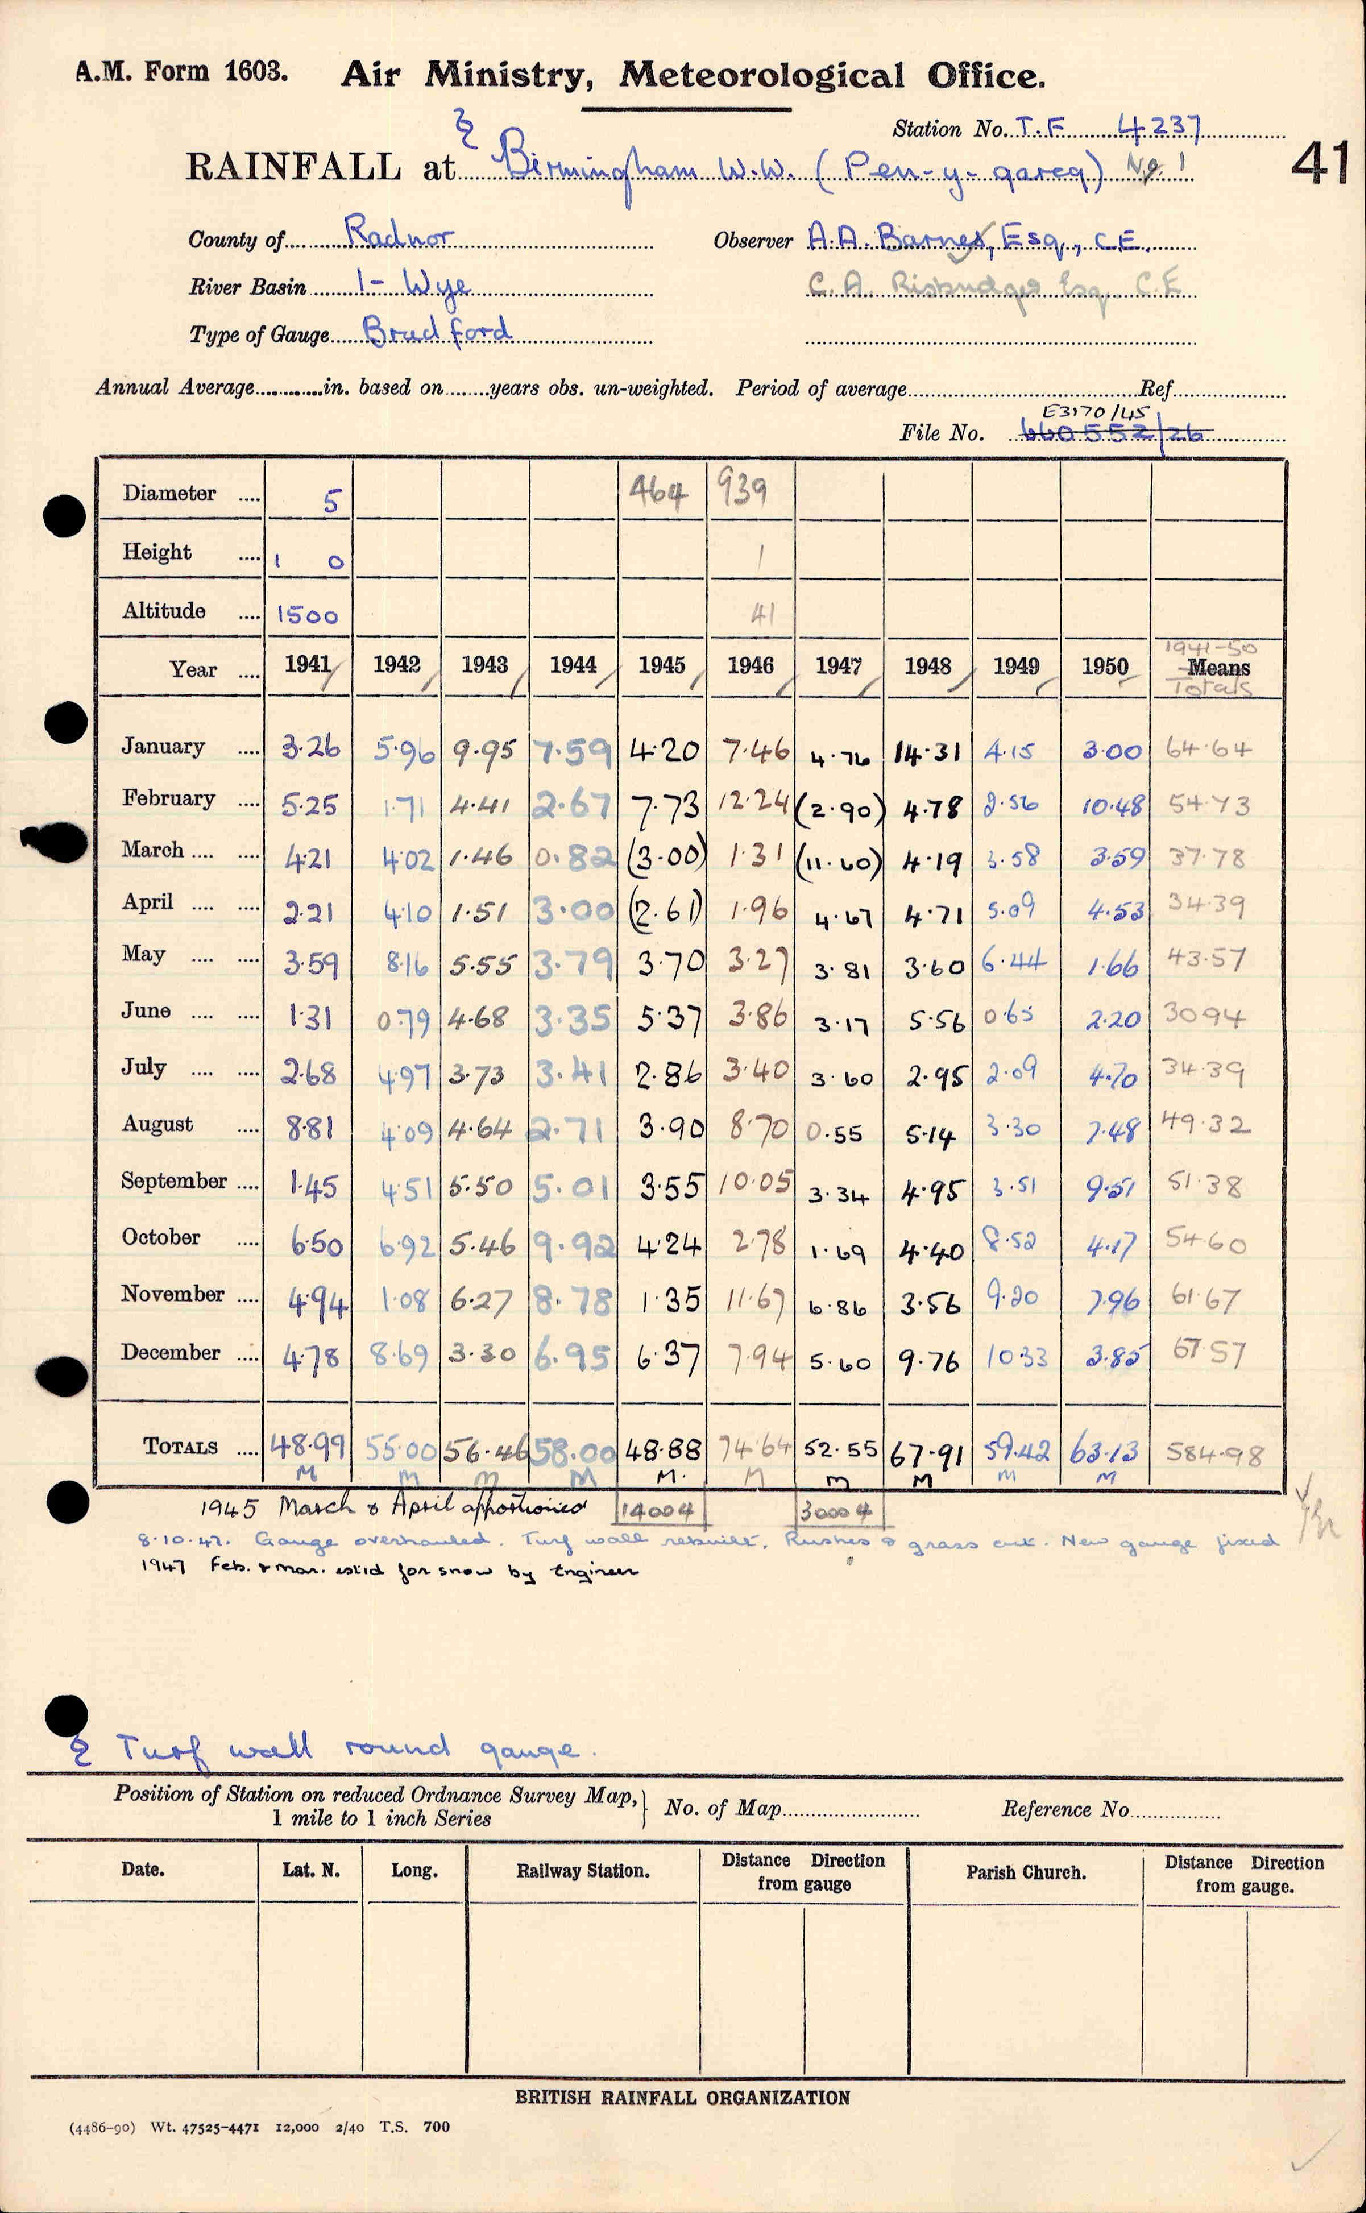 A.M. Form 1603. Air Ministry, Meteorological Office.
Station No. T.F 4237
RAINFALL at Birmingham W.W. (Pen-y-gareg) No. 1
41
County of Radnor Observer A.A. Barnes, Esq., C.E.
River Basin 1 - Wye C.A. Risbridger Esq. C.E
Type of Gauge Bradford
Annual Average in. based on years obs. un-weighted. Period of average Ref
E3170/45
File No. 660552/26
Diameter 5 464 939
Height 1 0 1
Altitude 1500 41
1941-50
Year 1941 1942 1943 1944 1945 1946 1947 1948 1949 1950 Means
Totals
January 3.26 5.96 9.95 7.59 4.20 7.46 4.76 14.31 4.15 3.00 64.64
February 5.25 1.71 4.41 2.67 7.73 12.24 (2.90) 4.78 2.56 10.48 54.73
March 4.21 4.02 1.46 0.82 (3.00) 1.31 (11.60) 4.19 3.58 3.59 37.78
April 2.21 4.10 1.51 3.00 (2.61) 1.96 4.67 4.71 5.09 4.53 34.39
May 3.59 8.16 5.55 3.79 3.70 3.27 3.81 3.60 6.44 1.66 43.57
June 1.31 0.79 4.68 3.35 5.37 3.86 3.17 5.56 0.65 2.20 30.94
July 2.68 4.97 3.73 3.41 2.86 3.40 3.60 2.95 2.09 4.70 34.39
August 8.81 4.09 4.64 2.71 3.90 8.70 0.55 5.14 3.30 7.48 49.32
September 1.45 4.51 5.50 5.01 3.55 10.05 3.34 4.95 3.51 9.51 51.38
October 6.50 6.92 5.46 9.92 4.24 2.78 1.69 4.40 8.52 4.17 54.60
November 4.94 1.08 6.27 8.78 1.35 11.67 6.86 3.56 9.20 7.96 61.67
December 4.78 8.69 3.30 6.95 6.37 7.94 5.60 9.76 10.33 3.85 67.57
TOTALS 48.99 55.00 56.46 58.00 48.88 74.64 52.55 67.91 59.42 63.13 584.98
M M M M M. M M M M M
1945 March & April apportioned 14004 30004
8.10.47. Gauge overhauled. Turf wall rebuilt. Rushes & grass cut. New gauge fixed
1947 Feb. & Mar. estid for snow by Engineer
Turf wall round gauge.
Position of Station on reduced Ordnance Survey Map, 1 mile to 1 inch Series No. of Map Reference No.
Date. Lat. N. Long. Railway Station. Distance Direction from gauge Parish Church. Distance Direction from gauge.
BRITISH RAINFALL ORGANIZATION
(4486-90) Wt. 47525-4471 12,000 2/40 T.S. 700